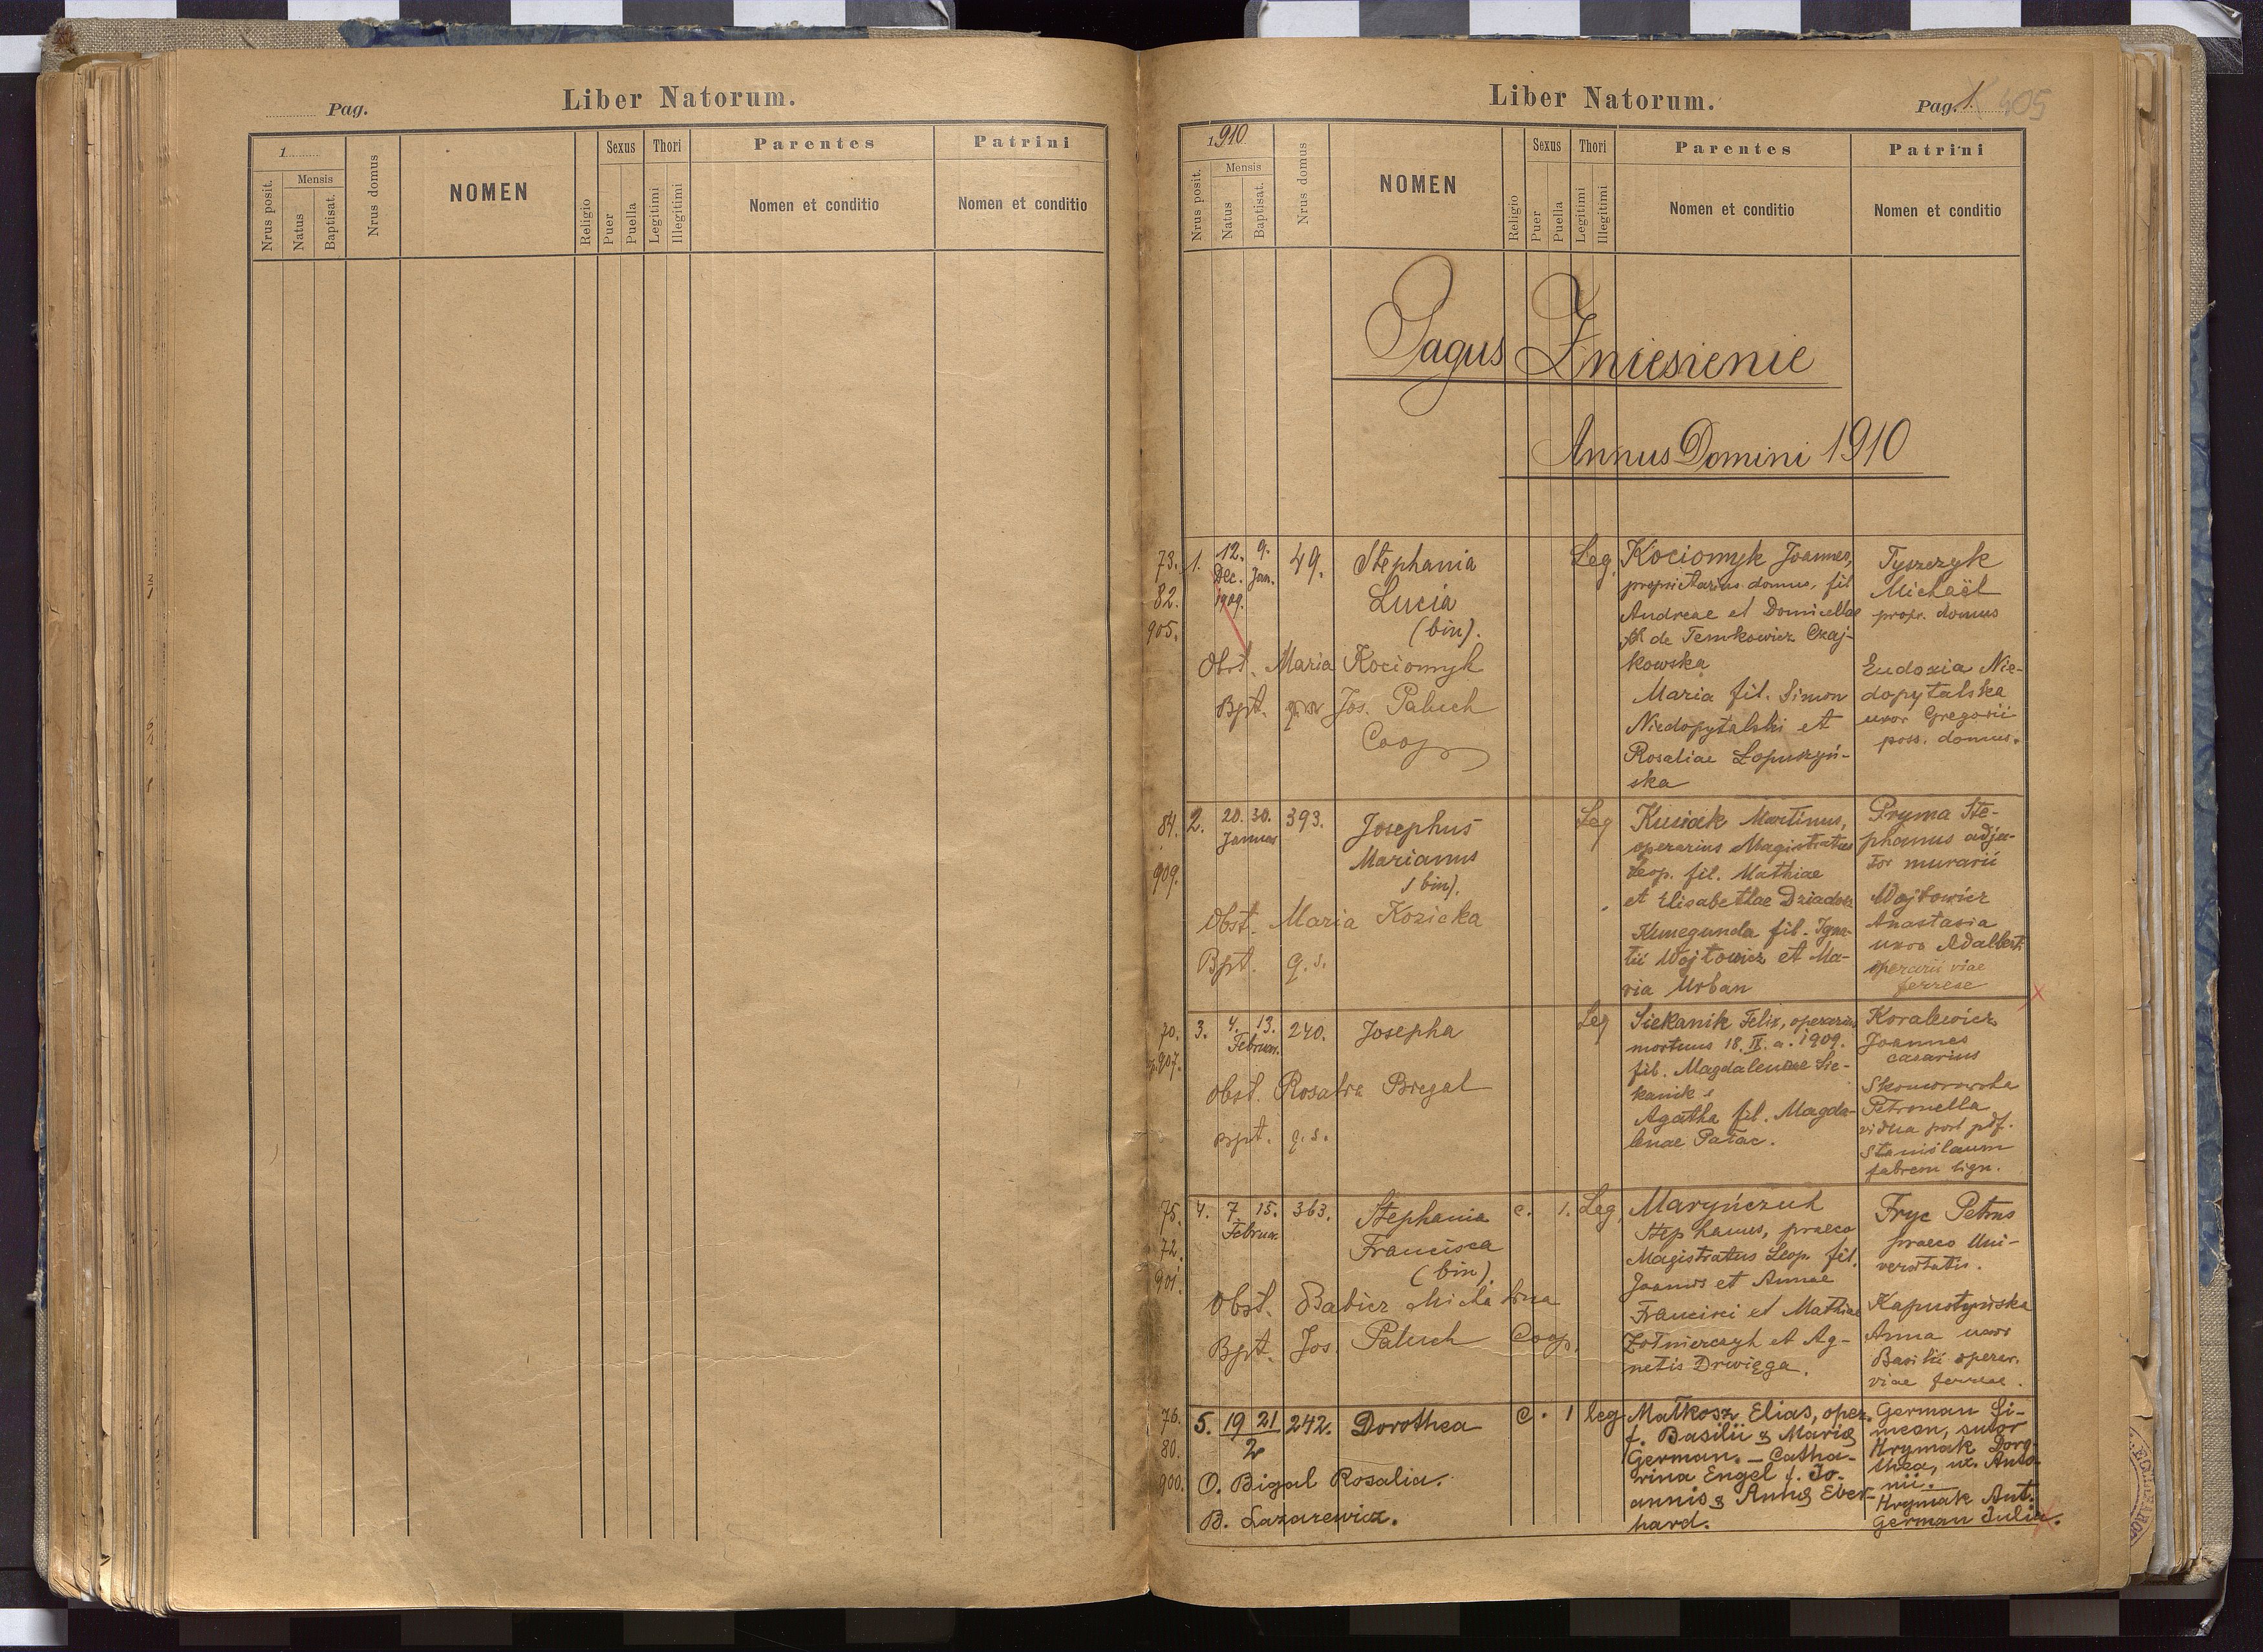 Pag.
Liber Natorum.
1
Nrus posit.
Mensis
Natus
Baptisat.
Nrus domus
NOMEN
Religio
Sexus
Puer
Puella
Thori
Legitimi
Illegitimi
Parentes
Nomen et conditio
Patrini
Nomen et conditio
Liber Natorum.
Pag. 1. 405
1910.
Nrus posit.
Mensis
Natus
Baptisat.
Nrus domus
NOMEN
Religio
Sexus
Puer
Puella
Thori
Legitimi
Illegitimi
Parentes
Nomen et conditio
Patrini
Nomen et conditio
Pagus Zniesienie
Annus Domini 1910
73.
82.
905.
1.
12. Dec. 1909.
9. Jan.
49.
Stephania
Lucia
(bin).
Obst. Maria Kociomyk
Bpt. Jos. Paluch
Coop
Leg.
Kociomyk Joannes,
proprietarius domus, fil
Andreae et Domicellae
de Temkowicz Czaj-
kowska
Maria fil. Simon
Niedopytalski et
Rosaliae Łopuszyń-
ska
Tyszczyk
Michaël
propr. domus
Eudoxia Nie-
dopytalska
uxor Gregorii
poss. domus.
84.
909.
2.
20. 30.
Januar
393.
Josephus
Marianus
(bin).
Obst. Maria Kozicka
Bpt. q.s.
Leg
Kusiak Martinus,
operarius Magistratus
Leop. fil. Mathiae
et Elisabethae Dziadosz
Kunegunda fil. Igna-
tii Wojtowicz et Ma-
ria Urban
Pryma Ste-
phanus adju-
tor murarii
Wojtowicz
Anastasia
uxor Adalberti
operarii viae
ferreae
70.
907.
3.
4. 13.
Februar.
240.
Josepha
Obst. Rosalia Bregal
Bpt. q.s.
Leg
Siekanik Felix, operarius
mortuus 18. IX. a. 1909.
fil. Magdalenae Sie-
kanik
Agatha fil. Magda-
lenae Pałac.
Koralewicz
Joannes
casarius
Skomorowska
Petronella
vidua post pdf.
Stanislaum
fabrem lign.
75.
72.
901.
4.
7. 15.
Februar.
363.
Stephania
Francisca
(bin).
Obst. Babicz Michalina
Bpt. Jos. Paluch Coop.
c. 1. Leg.
Maryńczuk
Stephanus, praeco
Magistratus Leop. fil.
Joannis et Annae
Francisci et Mathiae
Żołnierczyk et Ag-
netis Drwięga.
Fryc Petrus
praeco Uni-
versitatis.
Kapustyńska
Anna uxor
Basilii operar.
viae ferreae.
76.
80.
900.
5.
19 21
2
242.
Dorothea
O. Bigal Rosalia.
B. Lazarewicz.
c. 1 leg.
Matkosz Elias, oper.
f. Basilii & Mariae
German. – Catha-
rina Engel f. Jo-
annis & Annae Eber-
hard.
German Si-
meon, sutor
Hrymak Doro-
thea, ux. Anto-
nii.
Hrymak Ant.
German Julia.